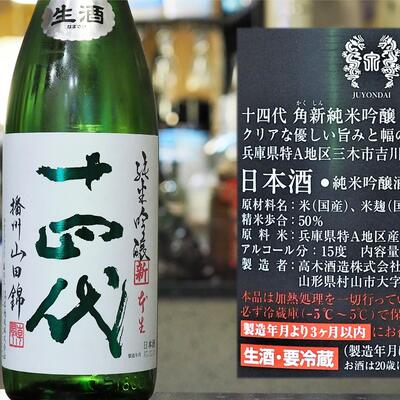 生酒
なまざけ
十四代
純米吟醸 新 本生
播州 山田錦
日本酒
製造年月
JUYONDAI
かく しん
十四代 角新純米吟醸
クリアな優しい旨みと幅の
兵庫県特A地区三木市吉川
日本酒 ● 純米吟醸酒
原材料名:米(国産)、米麹(国産
精米歩合:50%
原 料 米:兵庫県特A地区産
アルコール分:15度 内容量
製 造 者:高木酒造株式会社
山形県村山市大字
本品は加熱処理を一切行ってい
必ず冷蔵庫(-5℃〜5℃)で保
製造年月より3ヶ月以内にお
生酒・要冷蔵 (製造年月
お酒は20歳に